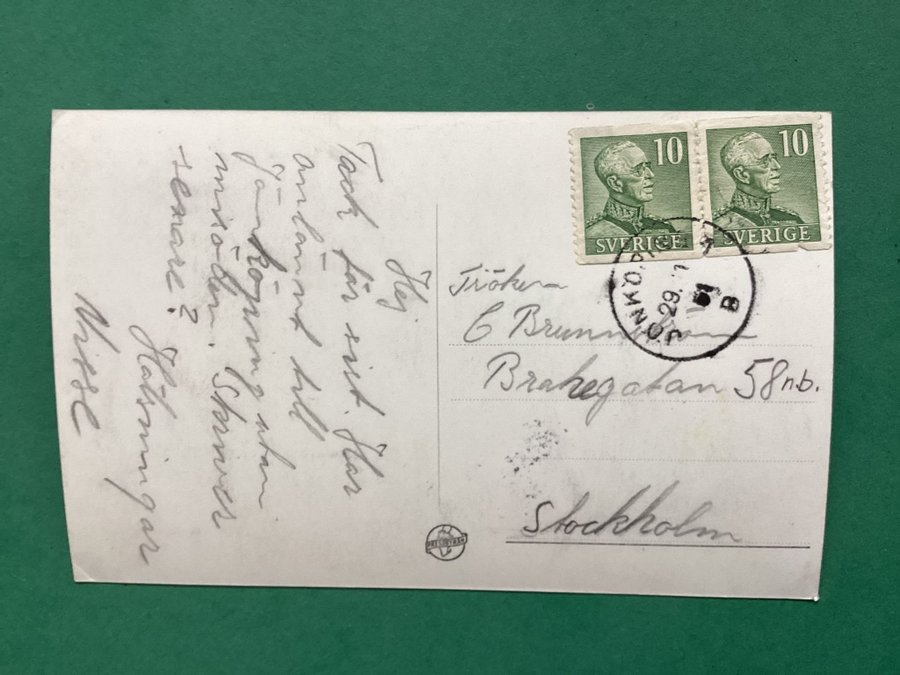 Hej
Tack för sist. Har
anlänt till
Jönköping utan
missöden. Skriver
senare?
Hälsningar
Nisse
10 10
SVERIGE SVERIGE
JÖNKÖPING
29. 1
B
Fröken
Brahegatan 58 n.b.
Stockholm